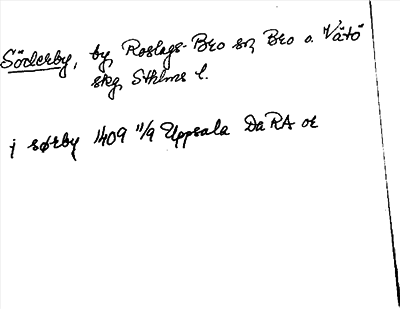 Söderby, by, Roslags-Bro sn, Bro o. Vätö
skg, Sthlms l.
j sørby 1409 11/9 Uppsala DaRA or